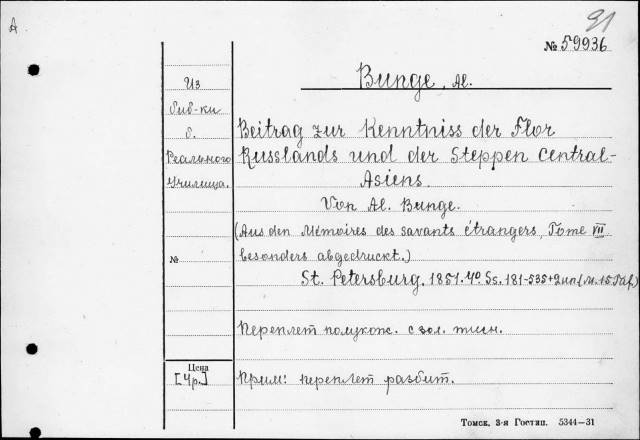 А
91
№ 59936
Bunge, Al.
Из
биб-ки
б.
Реального
Училища.
Beitrag zur Kenntniss der Flor
Russlands und der Steppen Central-
Asiens.
Von Al. Bunge.
(Aus den Mémoires des savants étrangers, Tome VII
besonders abgedruckt.)
№
St. Petersburg. 1851. 4º. Ss. 181-535+2нп
Переплет полукож. с зол. тисн.
Цена
[4р.]
Прим: переплет разбит.
Томск, 3-я Гостип. 5344—31